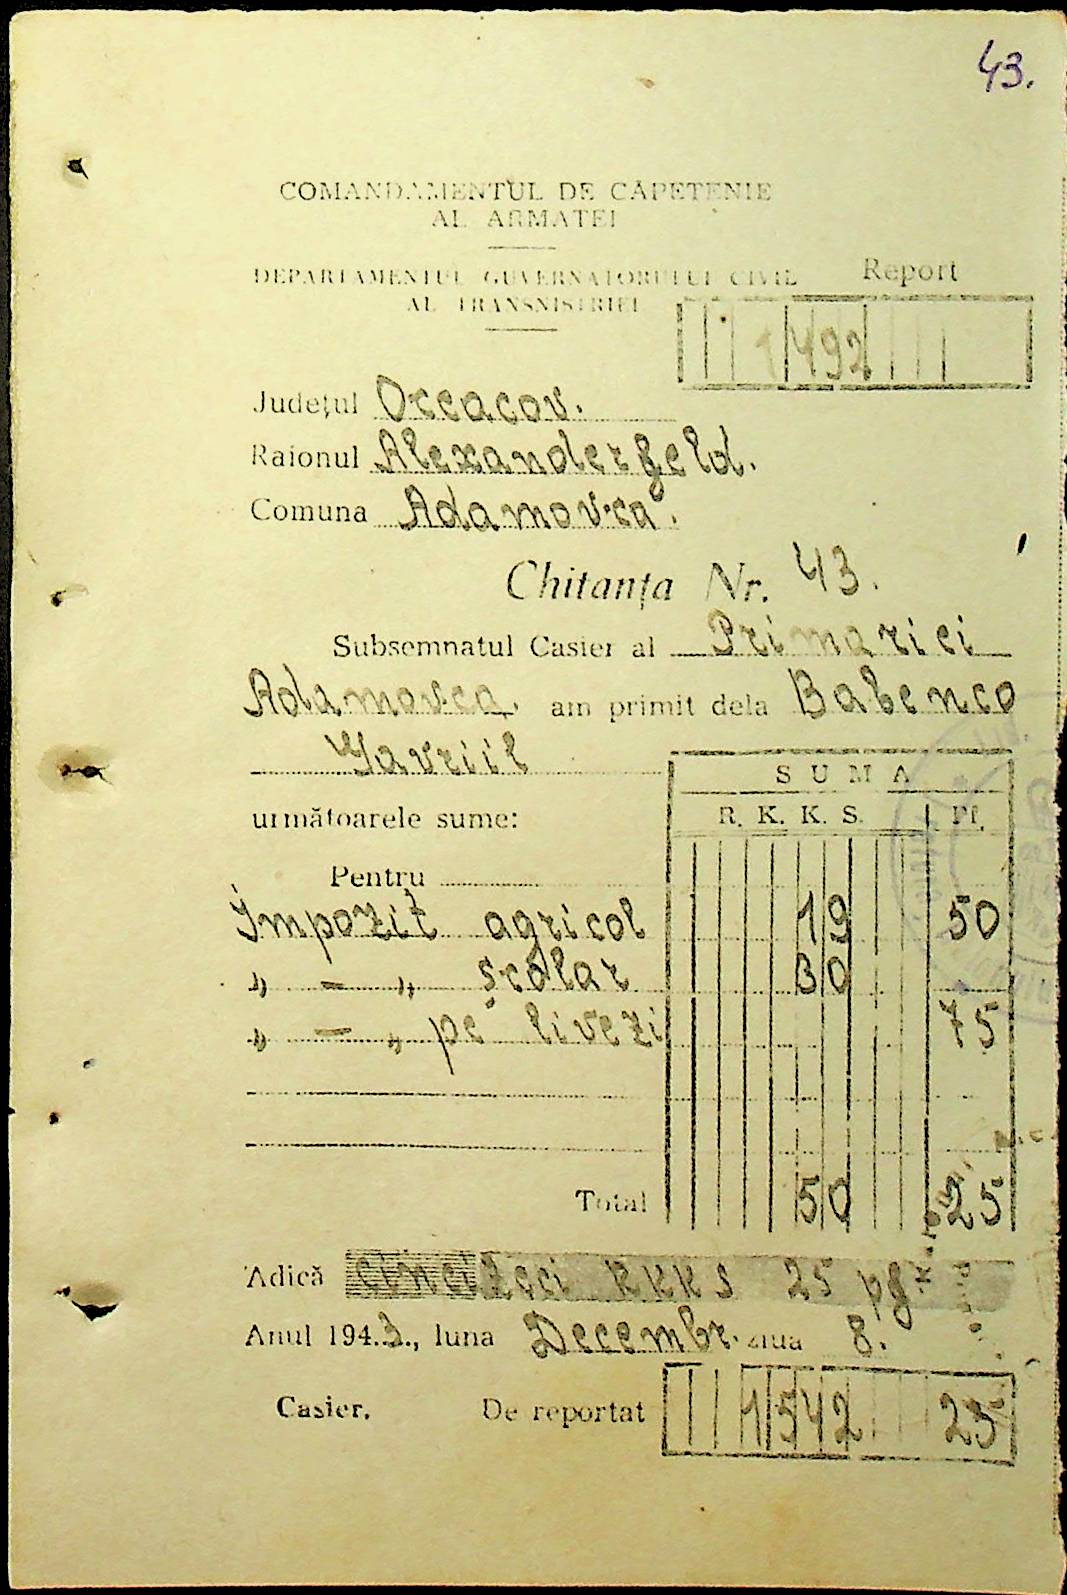 43.
COMANDAMENTUL DE CĂPETENIE
AL ARMATEI
DEPARTAMENTUL GUVERNATORULUI CIVIL
AL TRANSNISTRIEI
Report
1492
Județul Oceacov.
Raionul Alexanderfeld.
Comuna Adamovca.
Chitanța Nr. 43.
Subsemnatul Casier al Primariei
Adamovca. am primit dela Babenco
Gavriil
următoarele sume:
SUMA
R. K. K. S. Pf.
Pentru
Impozit agricol 19 50
„ — „ școlar 30
„ — „ pe livezi 75
Total 50 25
Adică cincizeci RKKS 25 pg.
Anul 1943., luna Decembr. ziua 8.
Casier, De reportat 1542 25